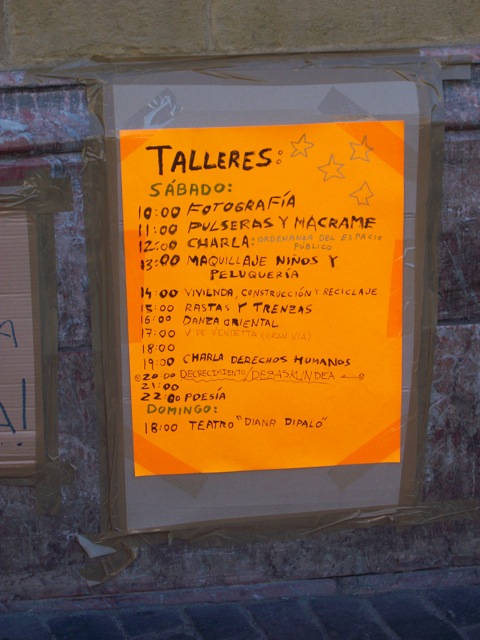 TALLERES:
SÁBADO:
10:00 FOTOGRAFÍA
11:00 PULSERAS Y MACRAME
12:00 CHARLA: ORDENANZA DEL ESPACIO PÚBLICO
13:00 MAQUILLAJE NIÑOS Y
PELUQUERÍA
14:00 VIVIENDA, CONSTRUCCIÓN Y RECICLAJE
15:00 RASTAS Y TRENZAS
16:00 DANZA ORIENTAL
17:00 V DE VENDETTA (GRAN VÍA)
18:00
19:00 CHARLA DERECHOS HUMANOS
20:00 DECRECIMIENTO/DEBASKUNDEA
21:00
22:00 POESÍA
DOMINGO:
18:00 TEATRO "DIANA DIPALO"